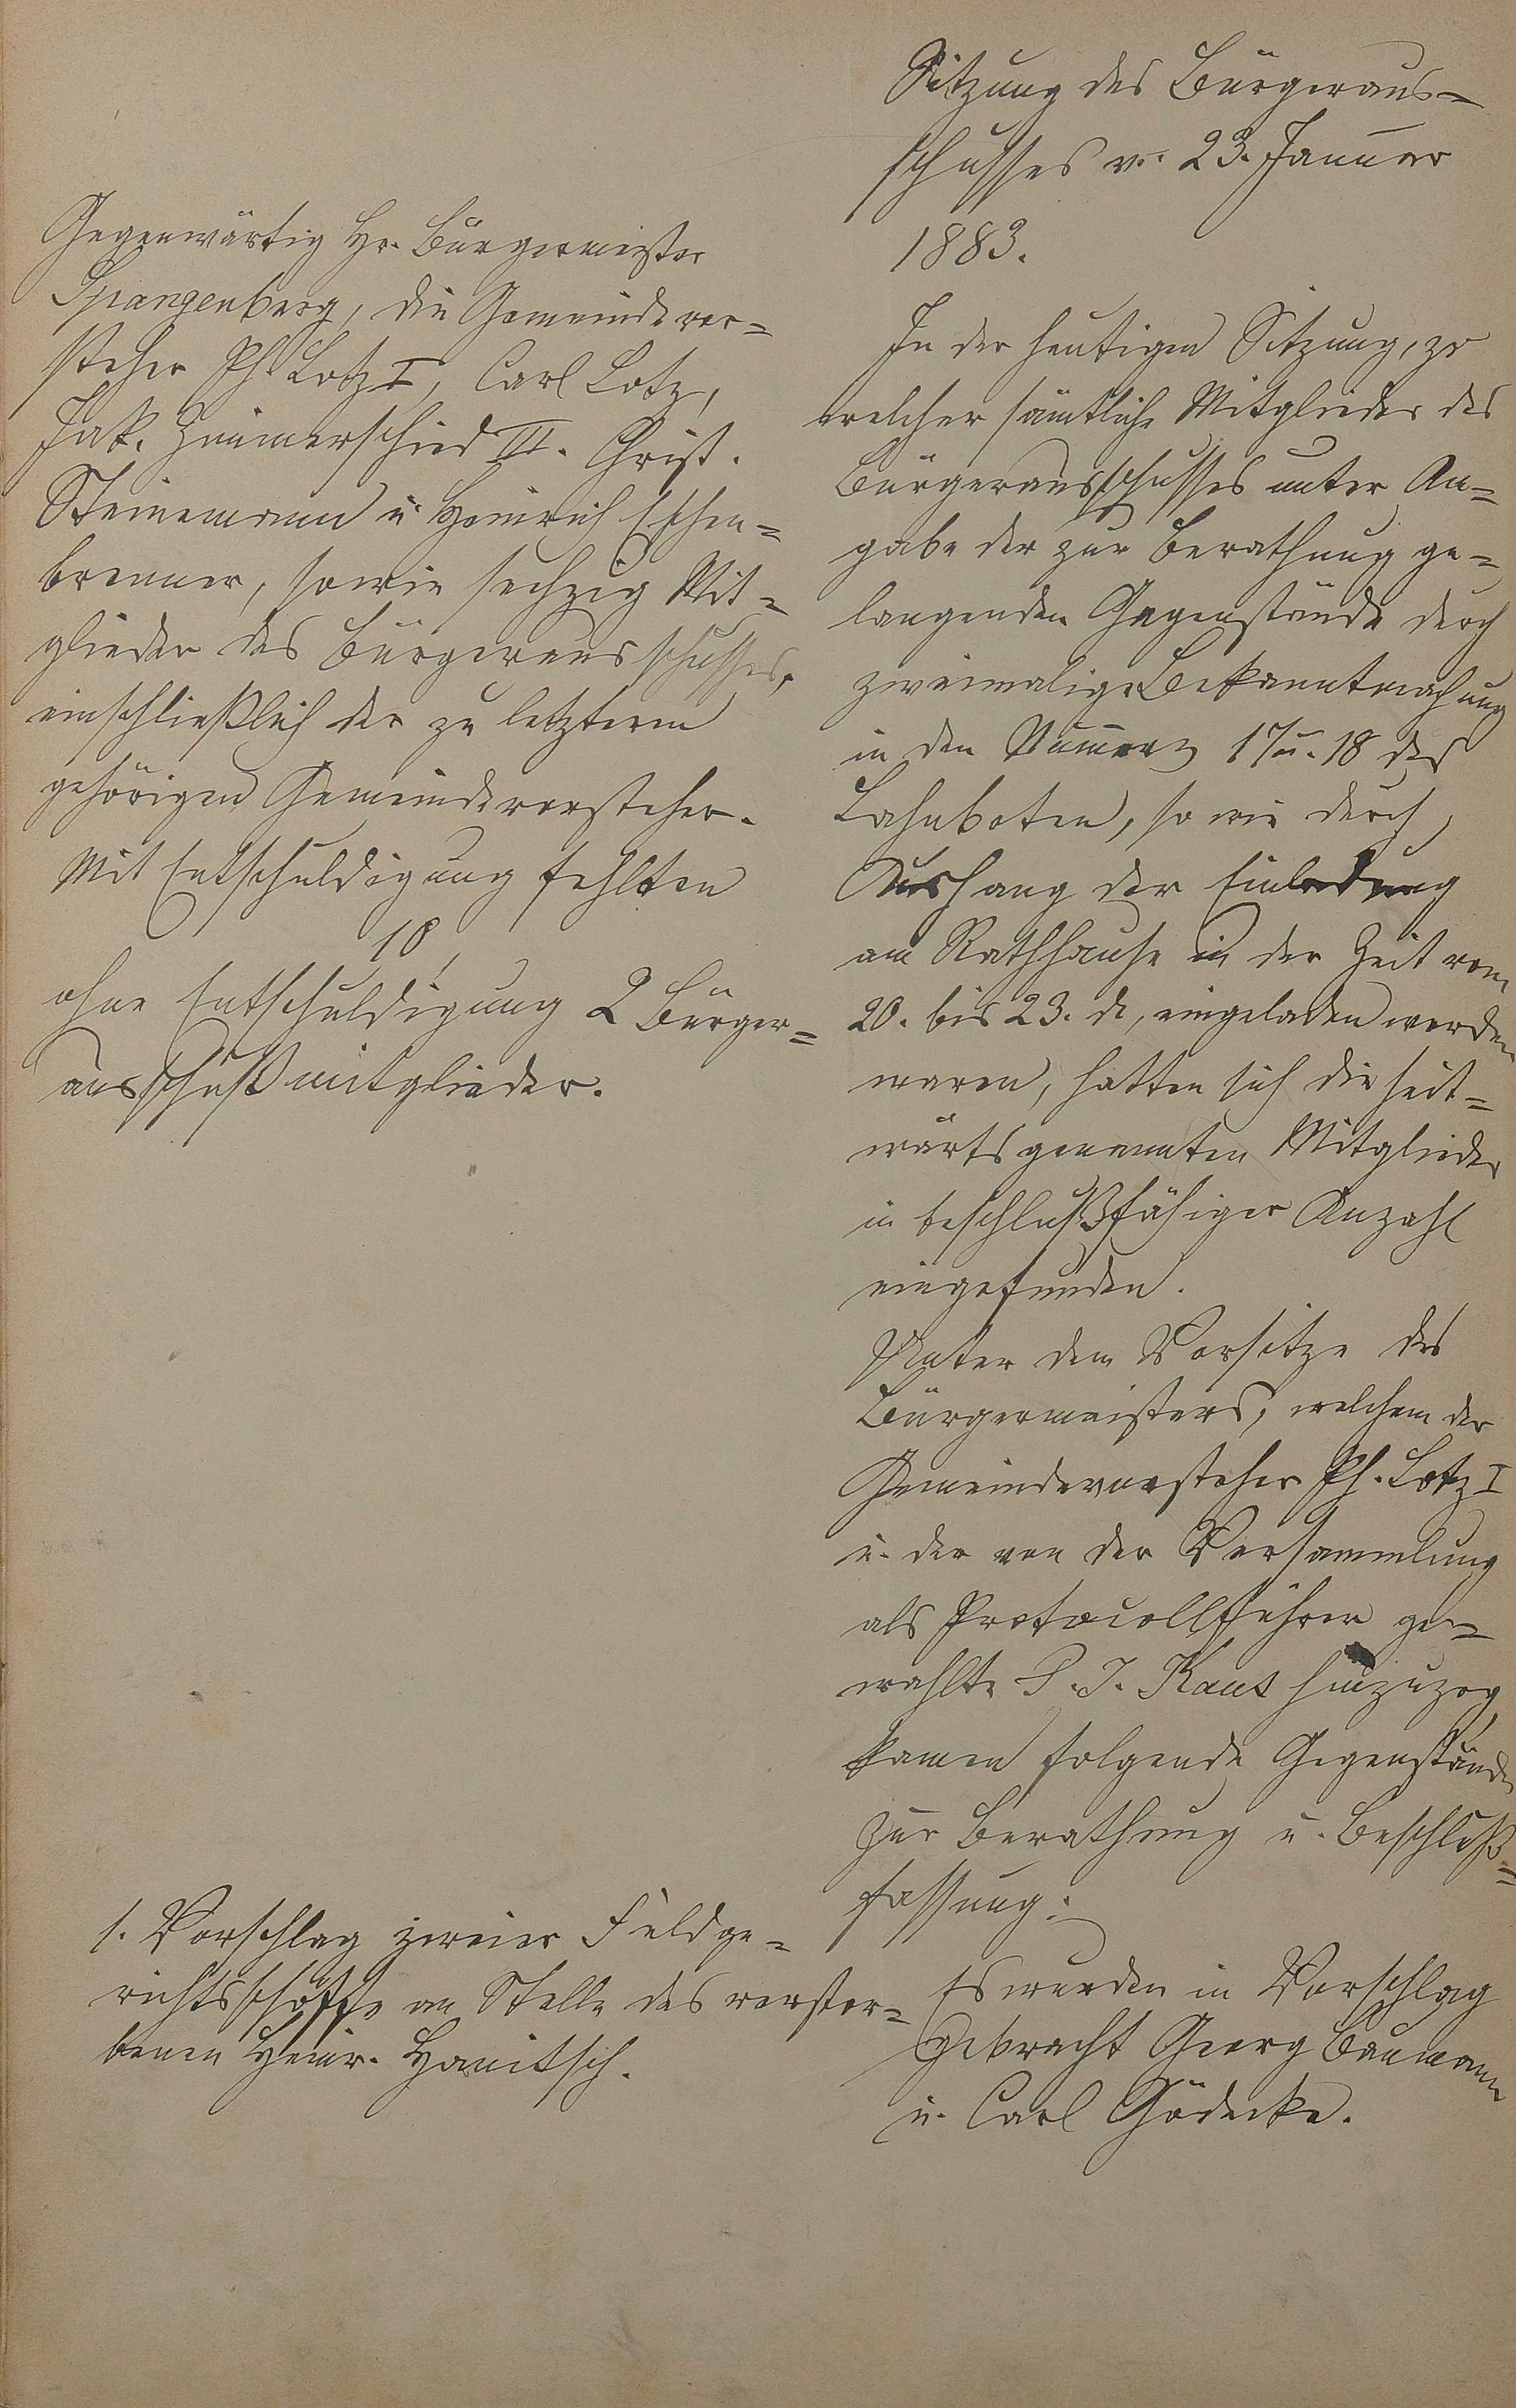 Sitzung des Bürgeraus-
schusses v. 23. Januar
1883.
Gegenwärtig Hr. Bürgermeister
Spangenberg, die Gemeindevor-
steher Ph. Lotz I, Carl Lotz,
Jak. Zimmerschied II. Christ.
Steinemann u. Heinrich Eschen-
brenner, sowie sechzig Mit-
glieder des Bürgerausschusses,
einschließlich der zu letzterem
gehörigen Gemeindevorsteher.
Mit Entschuldigung fehlten
10,
ohne Entschuldigung 2 Bürger-
ausschußmitglieder.
In der heutigen Sitzung, zu
welcher sämtliche Mitglieder des
Bürgerausschusses unter An-
gabe der zur Berathung ge-
langenden Gegenstände durch
zweimalige Bekanntmachung
in den Nummern 17 u. 18 des
Lahnboten, so wie durch
Aushang der Einladung
am Rathhause in der Zeit vom
20. bis 23. d, eingeladen worden
waren, hatten sich die seit-
wärts genannten Mitglieder
in beschlußfähiger Anzahl
eingefunden.
Unter dem Vorsitze des
Bürgermeisters, welchem der
Gemeindevorsteher Ph. Lotz I
u. der von der Versammlung
als Protocollführer ge-
wählte P. J. Kaus hinzuzog,
kamen folgende Gegenstände
zur Berathung u. Beschluß-
fassung:
1. Vorschlag zweier Feldge-
richtsschöffe an Stelle des verstor-
benen Heinr. Hanitsch.
Es wurden in Vorschlag
gebracht Georg Baumann
u. Carl Gödecke.